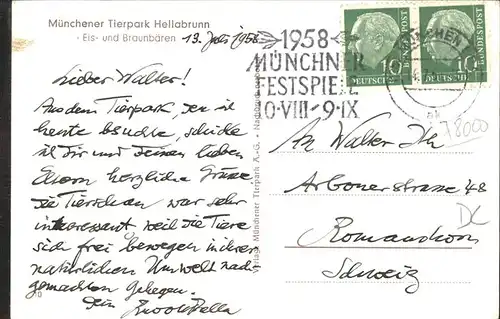 Münchener Tierpark Hellabrunn
- Eis- und Braunbären
13. Juli 1958
Lieber Walter!
Aus dem Tierpark, den ich
heute besuchte, schicke
ich Dir und Deinen lieben
Eltern herzliche Grüsse
Die Tierschau war sehr
interessant, weil die Tiere
sich frei bewegen in ihrer
natürlichen Umwelt nach-
gemachten Gehegen.
Dein
Verlag: Münchener Tierpark A.-G. - Nachdruck
1958
MÜNCHNER
FESTSPIELE
10·VIII-9·IX
10 DEUTSCHE BUNDESPOST
10 DEUTSCHE BUNDESPOST
18000
An Walter
Arbonerstrasse 48
DC
Romanshorn
Schweiz